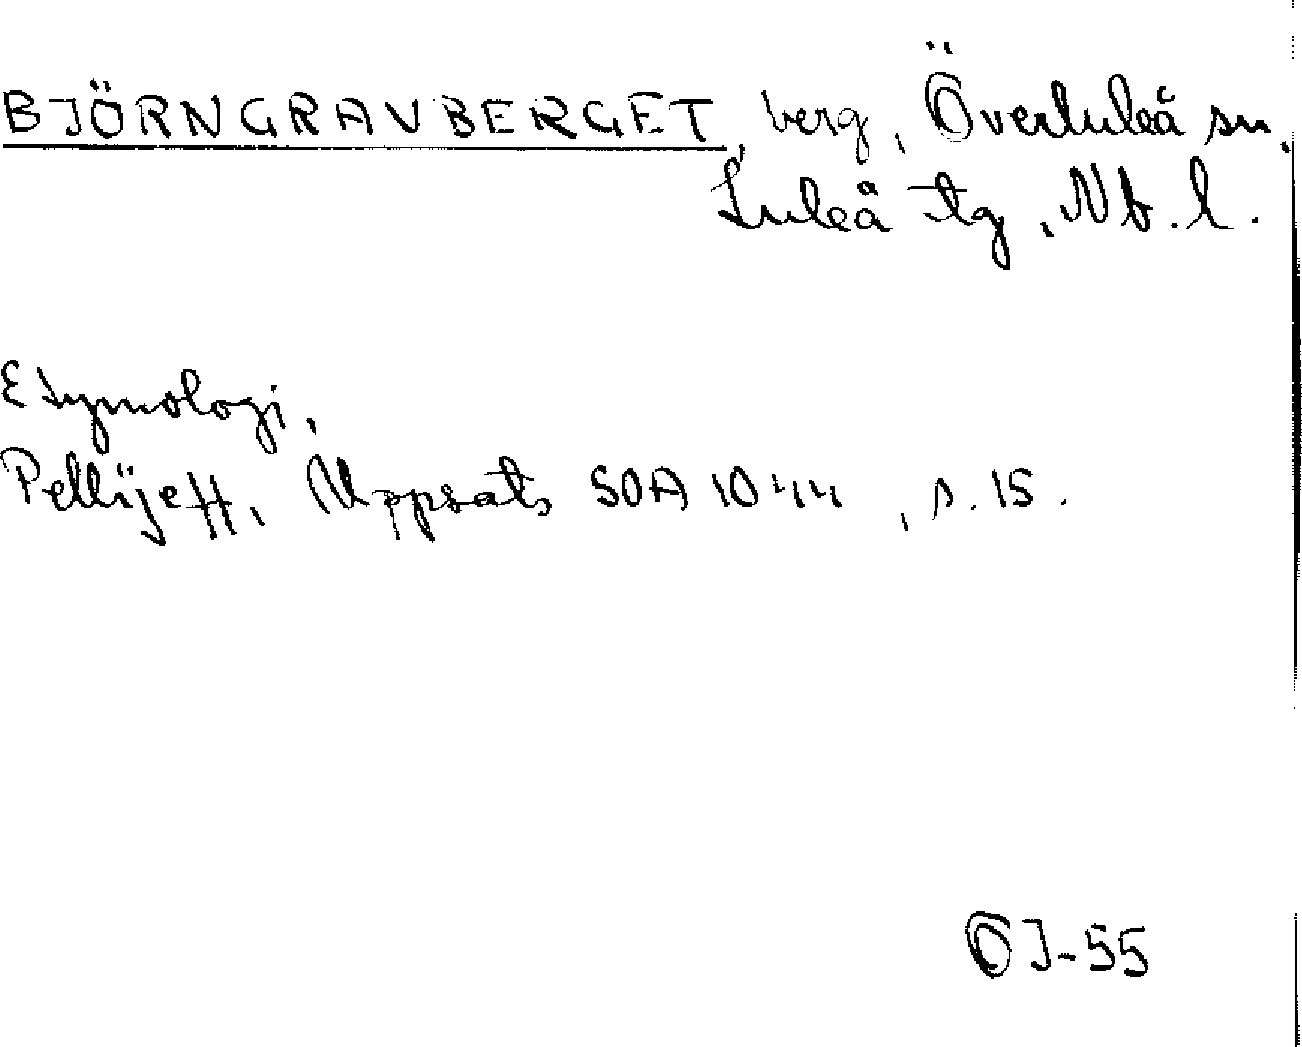 BJÖRNGRAVBERGET, berg, Överluleå sn,
Luleå tg, Nb.l.
Etymologi,
Pellijeff, Uppsats SOA 1044, s. 15.
OJ-55